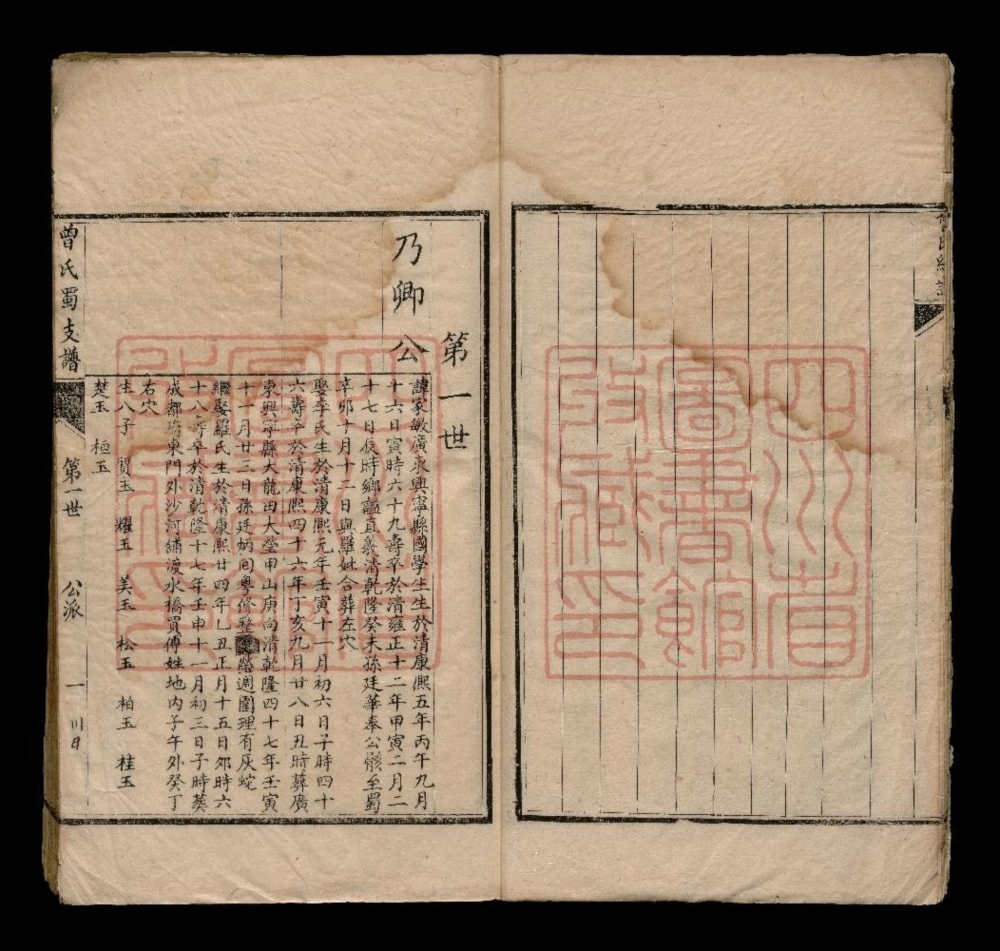 第一世
乃卿公
諱家敏廣東興寧縣國學生生於清康熙五年丙午九月
十六日寅時六十九壽卒於清雍正十二年甲寅二月二
十七日辰時鄉諡直義清乾隆癸未孫廷華奉公骸至蜀
辛卯十月十二日與羅妣合葬左穴
娶李氏生於清康熙元年壬寅十一月初六日子時四十
六壽卒於清康熙四十六年丁亥九月廿八日丑時葬廣
東興寧縣大龍田大塋申山庚向清乾隆四十七年壬寅
十一月廿三日孫廷炳回粵修整塋週圍理有灰蛇
繼娶羅氏生於清康熙廿四年乙丑正月十五日卯時六
十八壽卒於清乾隆十七年壬申十一月初三日子時葬
成都府東門外沙河鋪渡水橋買傅姓地內子午外癸丁
右穴
生八子 賢玉 耀玉 美玉 松玉 柏玉 桂玉
楚玉 極玉
曾氏蜀支譜 第一世 公派 一
四川省
圖書館
收藏印